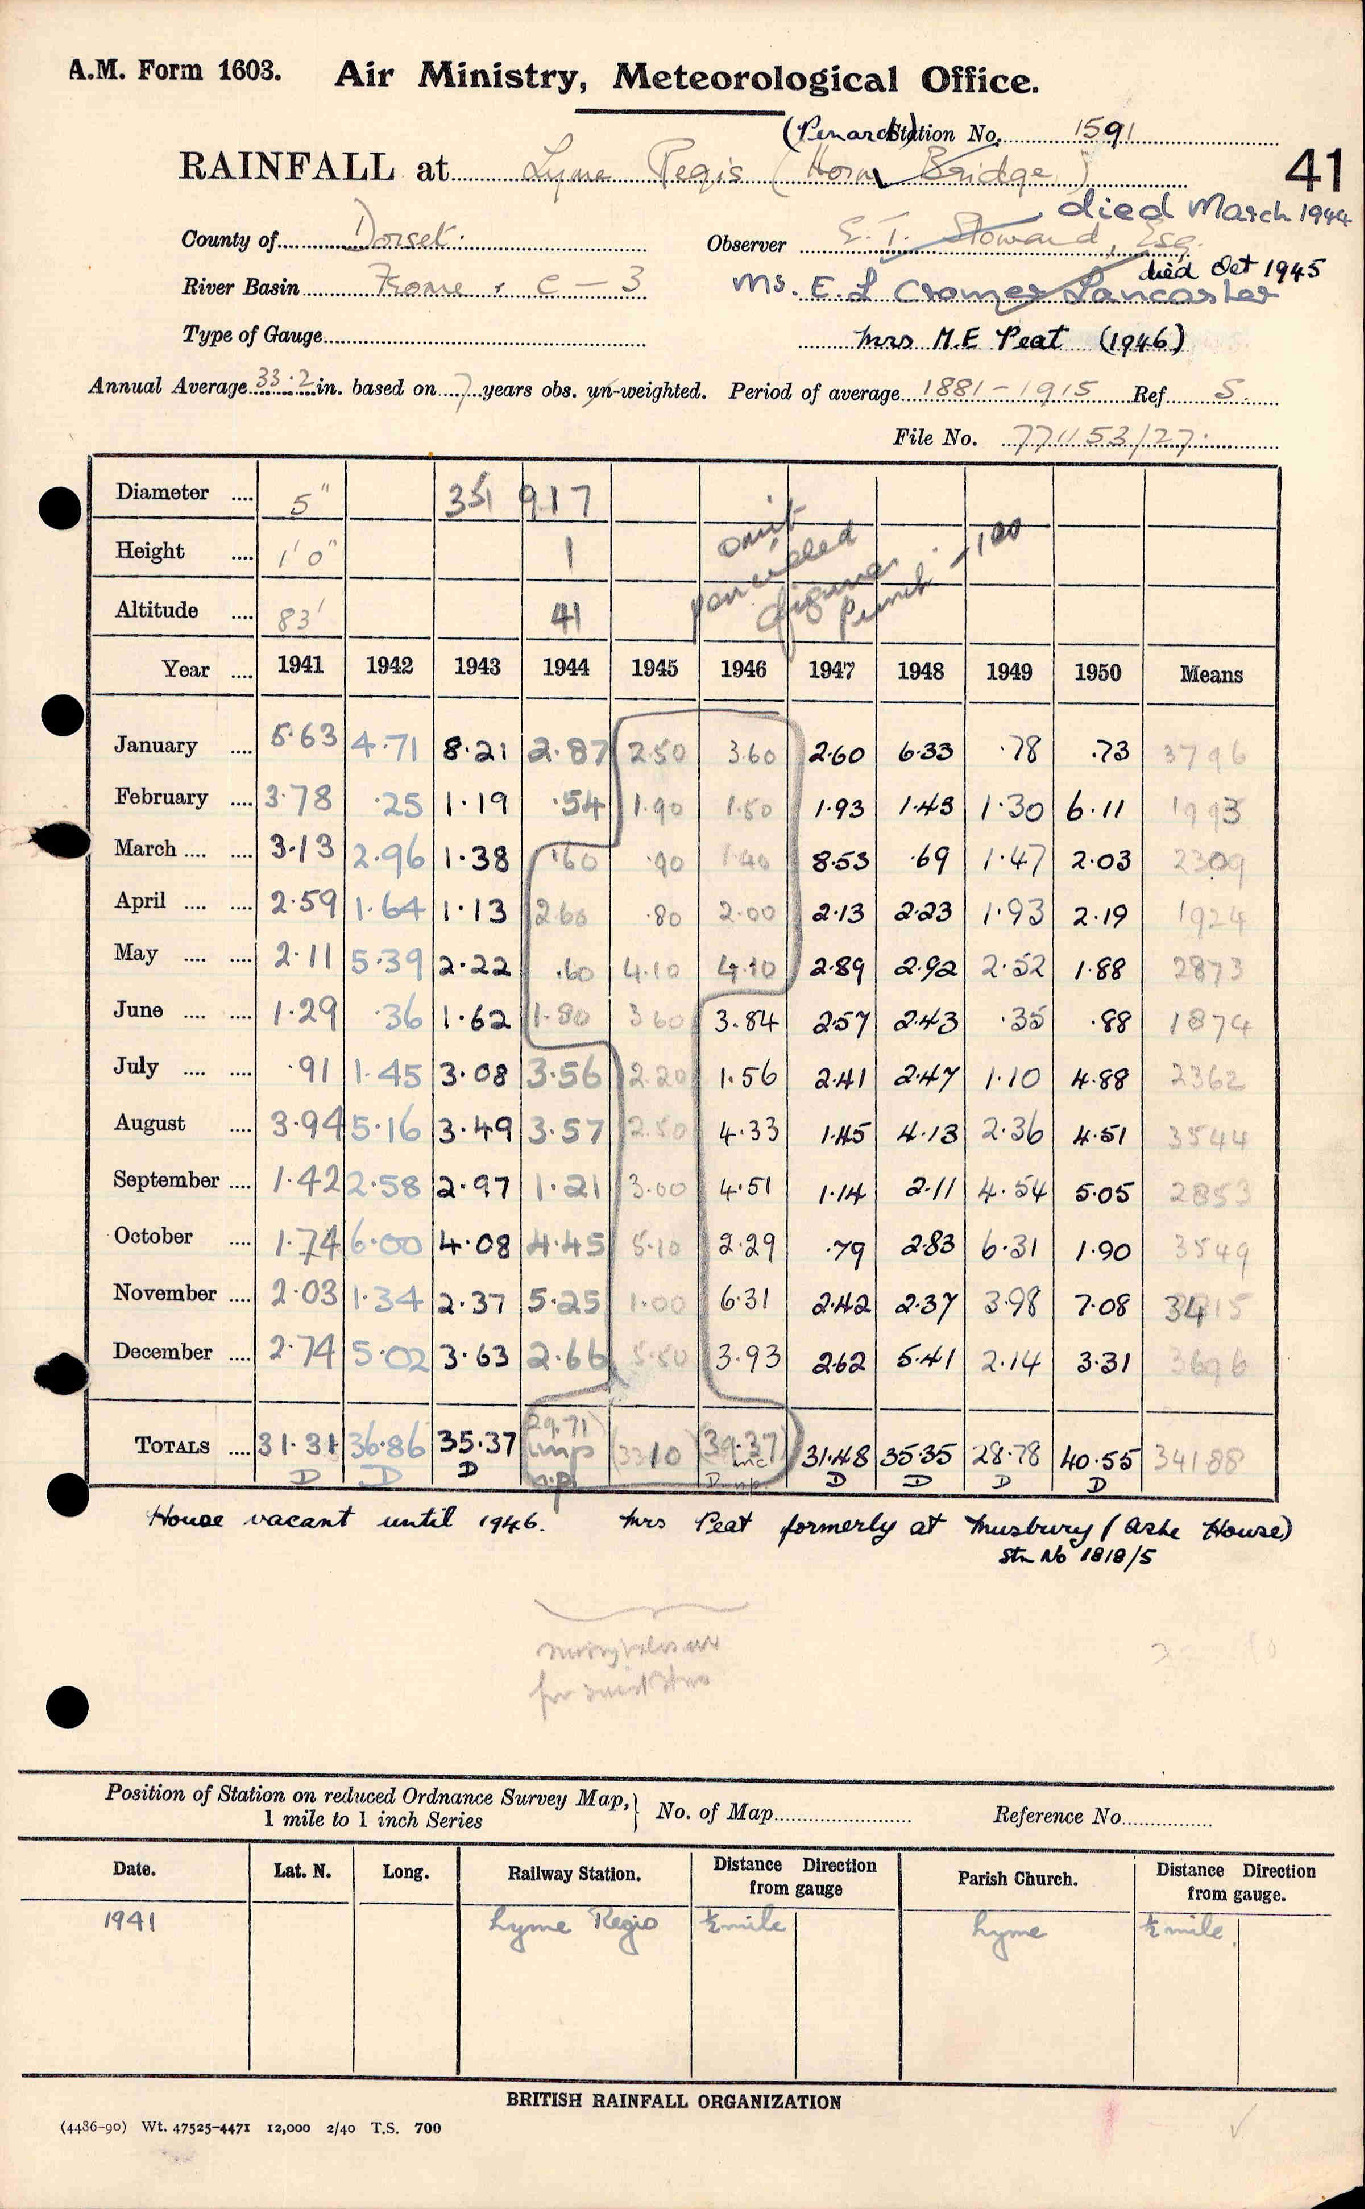 A.M. Form 1603. Air Ministry, Meteorological Office.
(Penard) Station No. 1591
RAINFALL at Lyme Regis (Horn Bridge) 41
died March 1944
County of Dorset. Observer E. T. Stoward, Esq.
died Oct 1945
River Basin Frome, C-3 Ms. E. L Cromer Lancaster
Type of Gauge Mrs M.E Peat (1946)
Annual Average 33.2 in. based on 7 years obs. un-weighted. Period of average 1881-1915 Ref S.
File No. 771153/27.
Diameter 5" 351 917
Height 1'0" 1
Altitude 83' 41
omit pencilled figures Punch -100
Year 1941 1942 1943 1944 1945 1946 1947 1948 1949 1950 Means
January 5.63 4.71 8.21 2.87 2.50 3.60 2.60 6.33 .78 .73 3796
February 3.78 .25 1.19 .54 1.90 1.50 1.93 1.43 1.30 6.11 1993
March 3.13 2.96 1.38 .60 .90 1.40 8.53 .69 1.47 2.03 2309
April 2.59 1.64 1.13 2.60 .80 2.00 2.13 2.23 1.93 2.19 1924
May 2.11 5.39 2.22 .60 4.10 4.10 2.89 2.92 2.52 1.88 2873
June 1.29 .36 1.62 1.80 3.60 3.84 2.57 2.43 .35 .88 1874
July .91 1.45 3.08 3.56 2.20 1.56 2.41 2.47 1.10 4.88 2362
August 3.94 5.16 3.49 3.57 2.50 4.33 1.45 4.13 2.36 4.51 3544
September 1.42 2.58 2.97 1.21 3.00 4.51 1.14 2.11 4.54 5.05 2853
October 1.74 6.00 4.08 4.45 5.10 2.29 .79 2.83 6.31 1.90 3549
November 2.03 1.34 2.37 5.25 1.00 6.31 2.42 2.37 3.98 7.08 3415
December 2.74 5.02 3.63 2.66 5.50 3.93 2.62 5.41 2.14 3.31 3696
TOTALS 31.31 36.86 35.37 (29.71) imp n.p. (33.10) (39.37) inc n.p. 31.48 35.35 28.78 40.55 34188
D D D D D D D D
House vacant until 1946. Mrs Peat formerly at Musbury (Ashe House)
Stn No 1818/5
for
Position of Station on reduced Ordnance Survey Map, 1 mile to 1 inch Series } No. of Map Reference No.
Date. Lat. N. Long. Railway Station. Distance Direction from gauge Parish Church. Distance Direction from gauge.
1941 Lyme Regis ½ mile Lyme ½ mile.
BRITISH RAINFALL ORGANIZATION
(4436-90) Wt. 47525-4471 12,000 2/40 T.S. 700